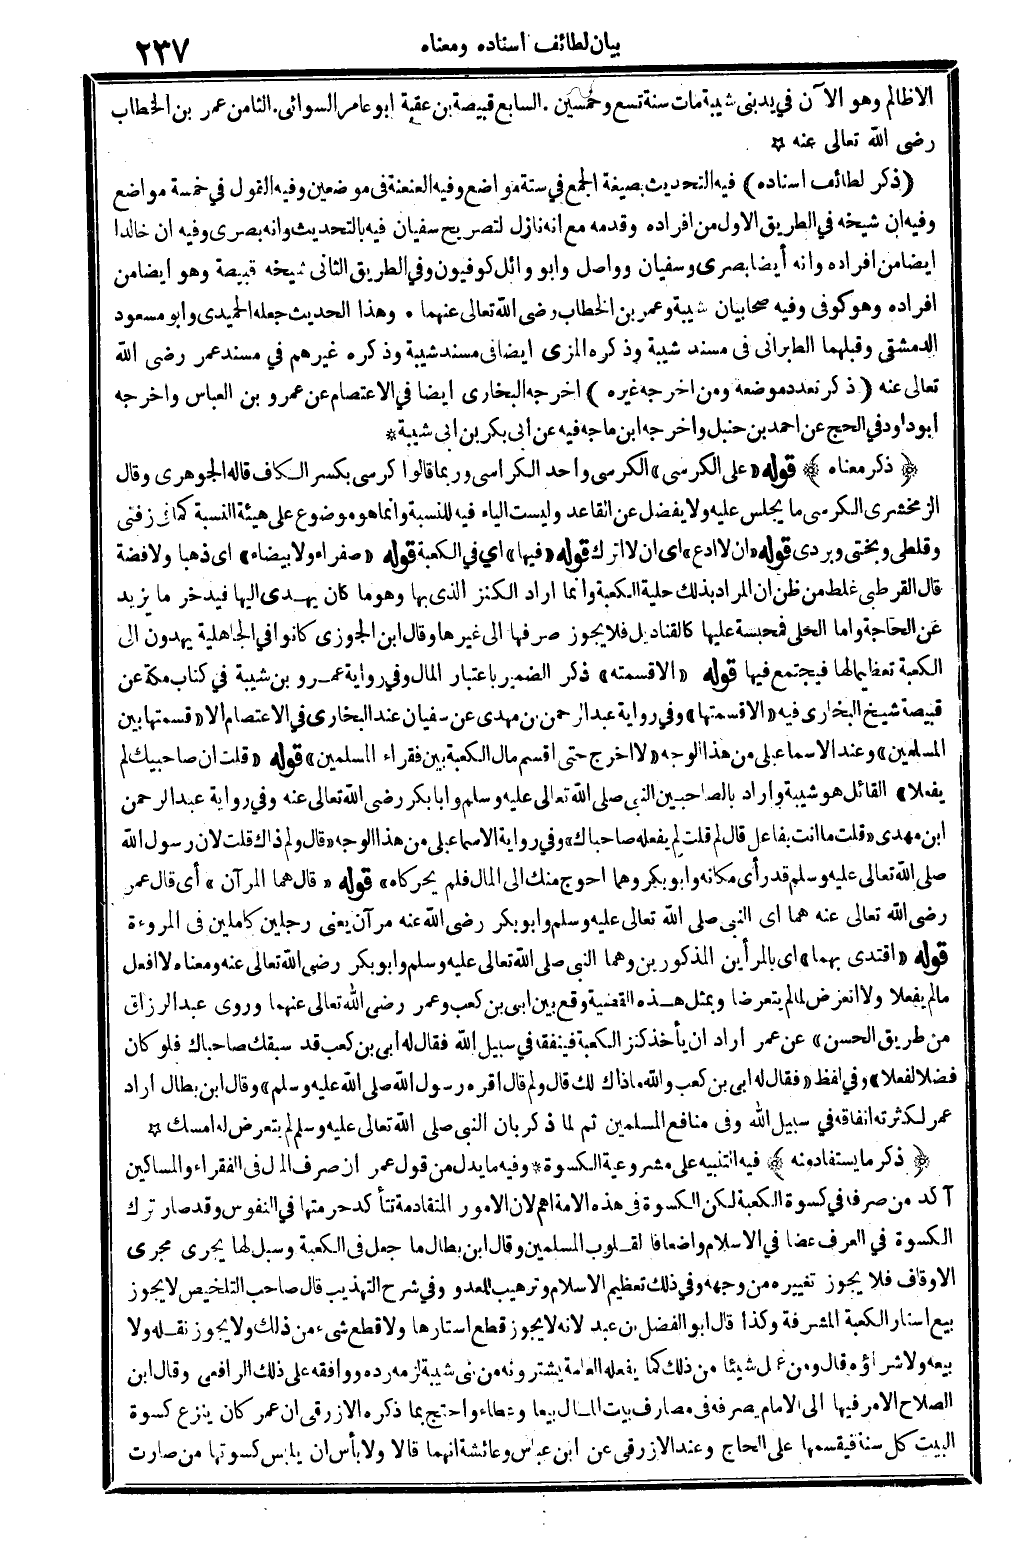 بيان لطائف اسناده ومعناه
٢٣٧
الا ظالم وهو الآن في يد بنى شيبة مات سنة تسع وخمسين . السابع قبيصة بن عقبة ابو عامر السوائى . الثامن عمر بن الخطاب
رضى الله تعالى عنه ✡
( ذكر لطائف اسناده ) فيه التحديث بصيغة الجمع في ستة مواضع وفيه العنعنة فى موضعين وفيه القول في خمسة مواضع
وفيه ان شيخه في الطريق الاول من افراده وقدمه مع انه نازل لتصريح سفيان فيه بالتحديث وانه بصرى وفيه ان خالدا
ايضا من افراده وانه أيضا بصرى وسفيان وواصل وابو وائل كوفيون وفي الطريق الثانى شيخه قبيصة وهو ايضا من
افراده وهو كوفى وفيه صحابيان شيبة وعمر بن الخطاب رضى الله تعالى عنهما . وهذا الحديث جعله الحميدى وابو مسعود
الدمشقى وقبلهما الطبرانى فى مسند شيبة وذكره المزى ايضا فى مسند شيبة وذكره غيرهم في مسند عمر رضى الله
تعالى عنه ( ذكر تعدد موضعه ومن اخرجه غيره ) اخرجه البخارى ايضا في الاعتصام عن عمرو بن العباس واخرجه
ابو داود في الحج عن احمد بن حنبل واخرجه ابن ماجه فيه عن أبى بكر بن ابى شيبة *
﴿ ذكر معناه ﴾ قوله « على الكرسى » الكرسى واحد الكراسى وربما قالوا كرسى بكسر الكاف قاله الجوهرى وقال
الزمخشرى الكرسى ما يجلس عليه ولا يفضل عن القاعد وليست الياء فيه للنسبة وانما هو موضوع على هيئة النسبة كما في زفنى
وقلطى وبختى وبردى قوله « ان لا ادع » اى ان لا اترك قوله « فيها » اي في الكعبة قوله « صفراء ولا بيضاء » اى ذهبا ولا فضة
قال القرطبى غلط من ظن ان المراد بذلك حلية الكعبة وانما اراد الكنز الذى بها وهو ما كان يهدى اليها فيدخر ما يزيد
عن الحاجة واما الحلى فمحبسة عليها كالقناديل فلا يجوز صرفها الى غيرها وقال ابن الجوزى كانوا في الجاهلية يهدون الى
الكعبة تعظيما لها فيجتمع فيها قوله « الا قسمته » ذكر الضمير باعتبار المال وفي رواية عمرو بن شيبة في كتاب مكة عن
قبيصة شيخ البخارى فيه « الا قسمتها » وفي رواية عبد الرحمن بن مهدى عن سفيان عند البخارى في الاعتصام الا « قسمتها بين
المسلمين » وعند الاسماعيلى من هذا الوجه « لا اخرج حتى اقسم مال الكعبة بين فقراء المسلمين » قوله « قلت ان صاحبيك لم
يفعلا » القائل هو شيبة واراد بالصاحبين النبى صلى الله تعالى عليه وسلم وابا بكر رضى الله تعالى عنه وفي رواية عبد الرحمن
ابن مهدى « قلت ما انت بفاعل قال لم قلت لم يفعله صاحباك » وفي رواية الاسماعيلى من هذا الوجه « قال ولم ذاك قلت لان رسول الله
صلى الله تعالى عليه وسلم قد رأى مكانه وابو بكر وهما احوج منك الى المال فلم يحركاه » قوله « قال هما المرآن » أى قال عمر
رضى الله تعالى عنه هما اى النبى صلى الله تعالى عليه وسلم وابو بكر رضى الله عنه مرآن يعنى رجلين كاملين فى المروءة
قوله « اقتدى بهما » اى بالمرأين المذكورين وهما النبى صلى الله تعالى عليه وسلم وابو بكر رضى الله تعالى عنه ومعناه لا افعل
مالم يفعلا ولا اتعرض لما لم يتعرضا وبمثل هذه القضية وقع بين ابى بن كعب وعمر رضى الله تعالى عنهما وروى عبد الرزاق
من طريق الحسن » عن عمر اراد ان يأخذ كنز الكعبة فينفقه في سبيل الله فقال له أبى بن كعب قد سبقك صاحباك فلو كان
فضلا لفعلا » وفي لفظ « فقال له ابى بن كعب والله ما ذاك لك قال ولم قال اقره رسول الله صلى الله عليه وسلم » وقال ابن بطال اراد
عمر لكثرته انفاقه في سبيل الله وفى منافع المسلمين ثم لما ذكر بان النبى صلى الله تعالى عليه وسلم لم يتعرض له امسك ✡
﴿ ذكر ما يستفاد منه ﴾ فيه التنبيه على مشروعية الكسوة * وفيه ما يدل من قول عمر ان صرف المال فى الفقراء والمساكين
آكد من صرفه في كسوة الكعبة لكن الكسوة فى هذه الامة اهم لان الامور المتقادمة تتأكد حرمتها في النفوس وقد صار ترك
الكسوة في العرف غضا في الاسلام واضعافا لقلوب المسلمين وقال ابن بطال ما جعل فى الكعبة وسبل لها يجرى مجرى
الاوقاف فلا يجوز تغييره من وجهه وفي ذلك تعظيم الاسلام وترهيب للعدو وفي شرح التهذيب قال صاحب التلخيص لا يجوز
بيع استار الكعبة المشرفة وكذا قال ابو الفضل بن عبد لانه لا يجوز قطع استارها ولا قطع شىء من ذلك ولا يجوز نقله ولا
بيعه ولا شراؤه قال ومن عمل شيئا من ذلك كما يفعله العامة يشترونه من بنى شيبة لزمه رده ووافقه على ذلك الرافعى وقال ابن
الصلاح الامر فيها الى الامام يصرفه فى مصارف بيت المال بيعا وعطاء واحتج بما ذكره الازرقى ان عمر كان ينزع كسوة
البيت كل سنة فيقسمها على الحاج وعند الازرقى عن ابن عباس وعائشة انهما قالا ولا بأس ان يلبس كسوتها من صارت